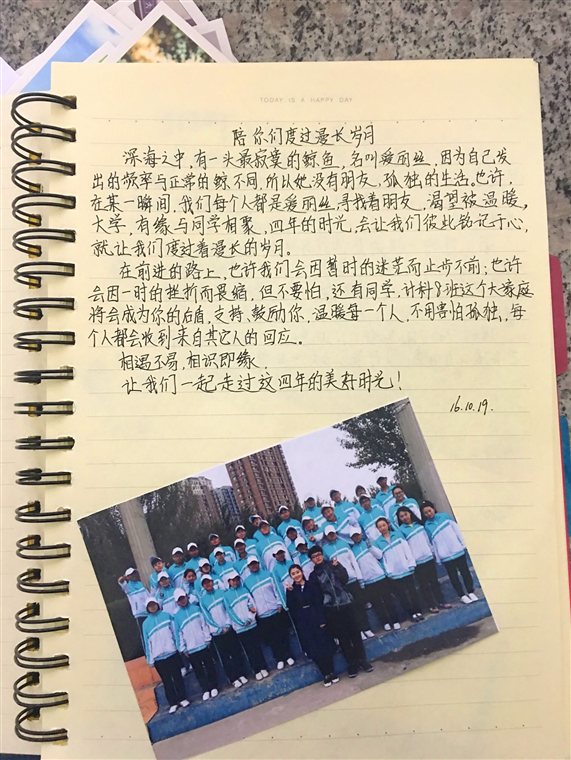 TODAY IS A HAPPY DAY
陪你们度过漫长岁月
深海之中,有一头最寂寞的鲸鱼,名叫爱丽丝,因为自己发
出的频率与正常的鲸不同,所以她没有朋友,孤独的生活。也许,
在某一瞬间,我们每个人都是爱丽丝,寻找着朋友,渴望被温暖,
大学,有缘与同学相聚,四年的时光,会让我们彼此铭记于心,
就让我们度过着漫长的岁月。
在前进的路上,也许我们会因暂时的迷茫而止步不前;也许
会因一时的挫折而畏缩,但不要怕,还有同学,计科8班这个大家庭
将会成为你的后盾,支持、鼓励你,温暖每一个人,不用害怕孤独,每
个人都会收到来自其它人的回应。
相遇不易,相识即缘.
让我们一起走过这四年的美好时光!
16.10.19.